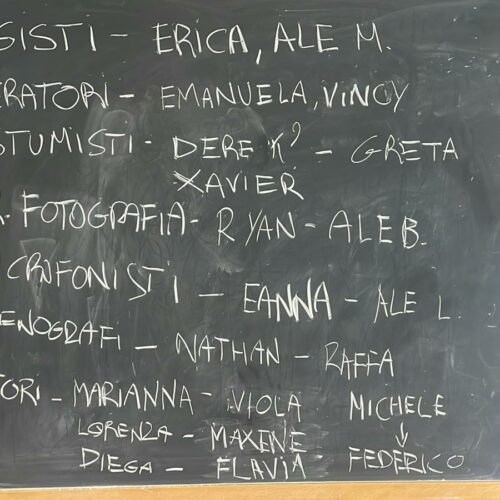 GISTI - ERICA, ALE M.
ERATORI - EMANUELA, VINCY
STUMISTI - DEREK? - GRETA
XAVIER
FOTOGRAFIA - RYAN - ALE B.
CROFONISTI - EANNA - ALE L.
ENOGRAFI - NATHAN - RAFFA
TORI - MARIANNA - VIOLA MICHELE
LORENZA - MAXENE ↓
DIEGA - FLAVIA FEDERICO